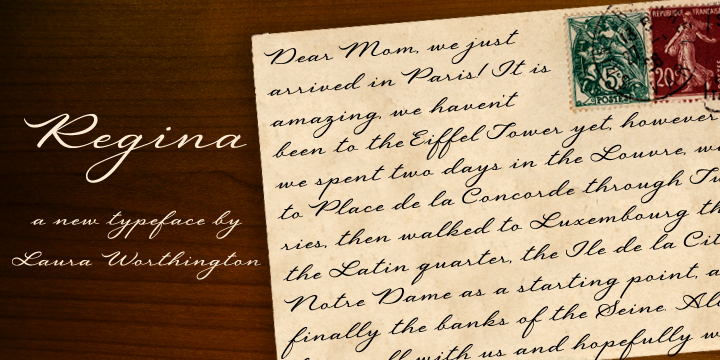 Regina
a new typeface by
Laura Worthington
Dear Mom, we just
arrived in Paris! It is
amazing, we haven't
been to the Eiffel Tower yet, however
we spent two days in the Louvre,
to Place de la Concorde through
ries, then walked to Luxembourg
the Latin quarter, the Ile de la
Notre Dame as a starting point,
finally the banks of the Seine.
with us and hopefully
5c
POSTES
REPUBLIQUE FRANÇAISE
20c